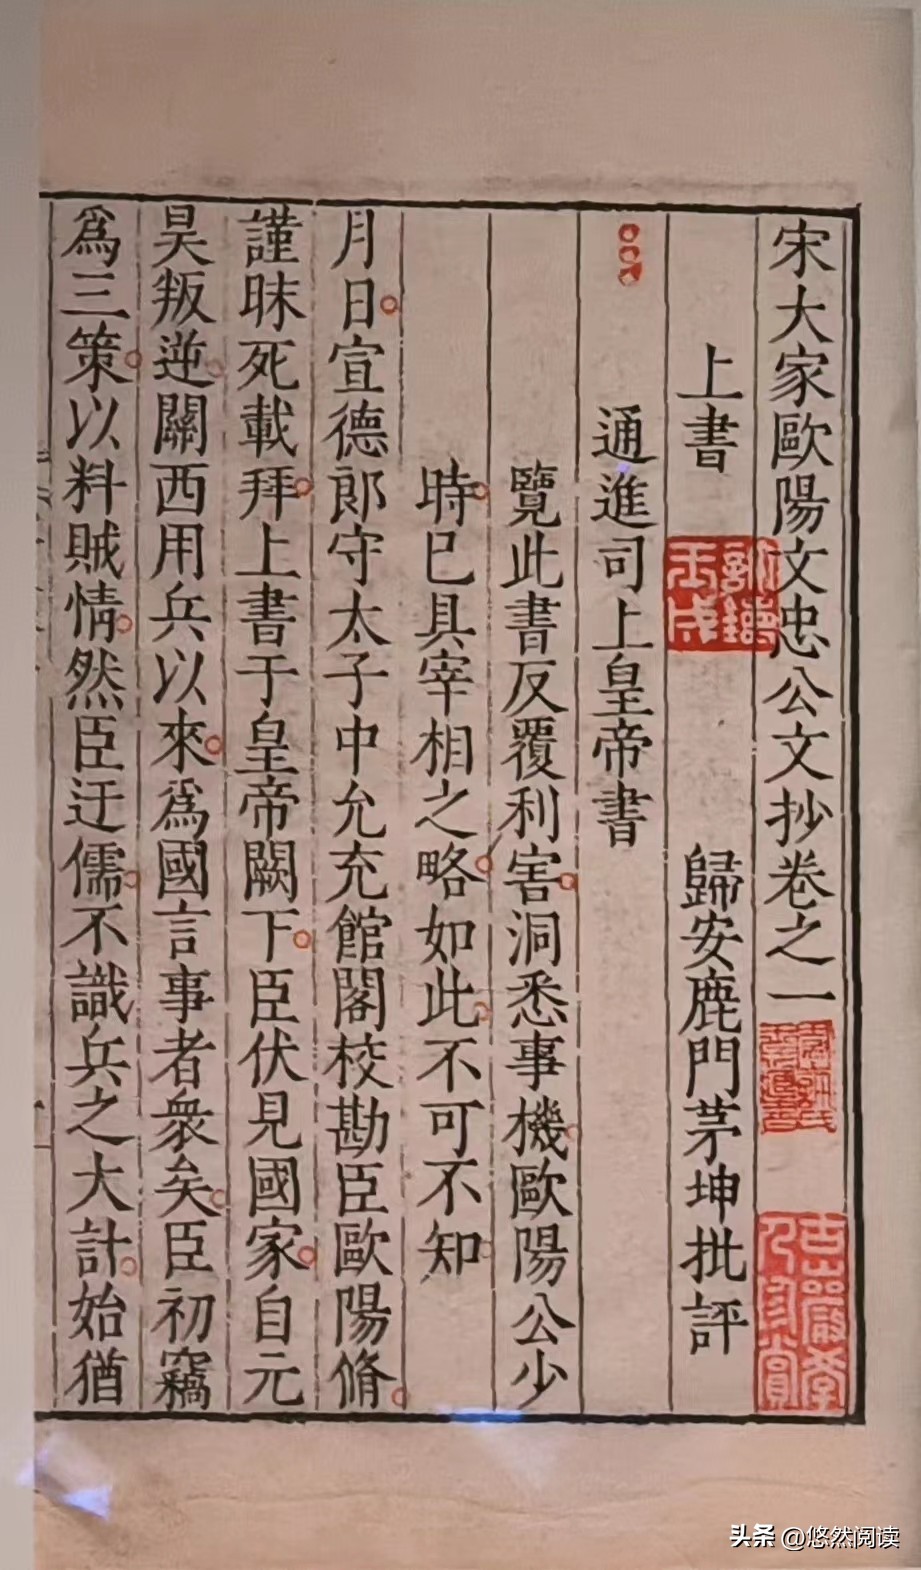 宋大家歐陽文忠公文抄卷之一
上書　歸安鹿門茅坤批評
通進司上皇帝書
覽此書反覆利害洞悉事機歐陽公少
時已具宰相之略如此不可不知
月日宣德郎守太子中允充館閣校勘臣歐陽脩
謹昧死載拜上書于皇帝闕下臣伏見國家自元
昊叛逆關西用兵以來爲國言事者衆矣臣初竊
爲三策以料賊情然臣迂儒不識兵之大計始猶
头条 @悠然阅读